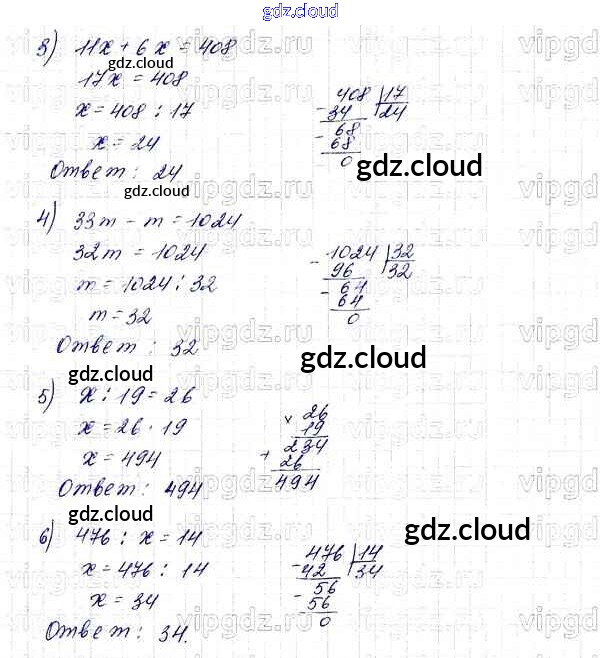 gdz.cloud
3) 11x + 6x = 408
gdz.cloud
17x = 408
x = 408 : 17
x = 24
Ответ : 24
408 | 17
- 34 24
- 68
68
0
gdz.cloud
gdz.cloud
4) 33m - m = 1024
32m = 1024
m = 1024 : 32
m = 32
Ответ : 32
- 1024 | 32
96 32
- 64
64
0
gdz.cloud
gdz.cloud
5) x : 19 = 26
x = 26 · 19
x = 494
Ответ : 494
× 26
19
+ 234
26
494
gdz.cloud
gdz.cloud
6) 476 : x = 14
x = 476 : 14
x = 34
Ответ : 34.
- 476 | 14
42 34
- 56
56
0
vipgdz.ru